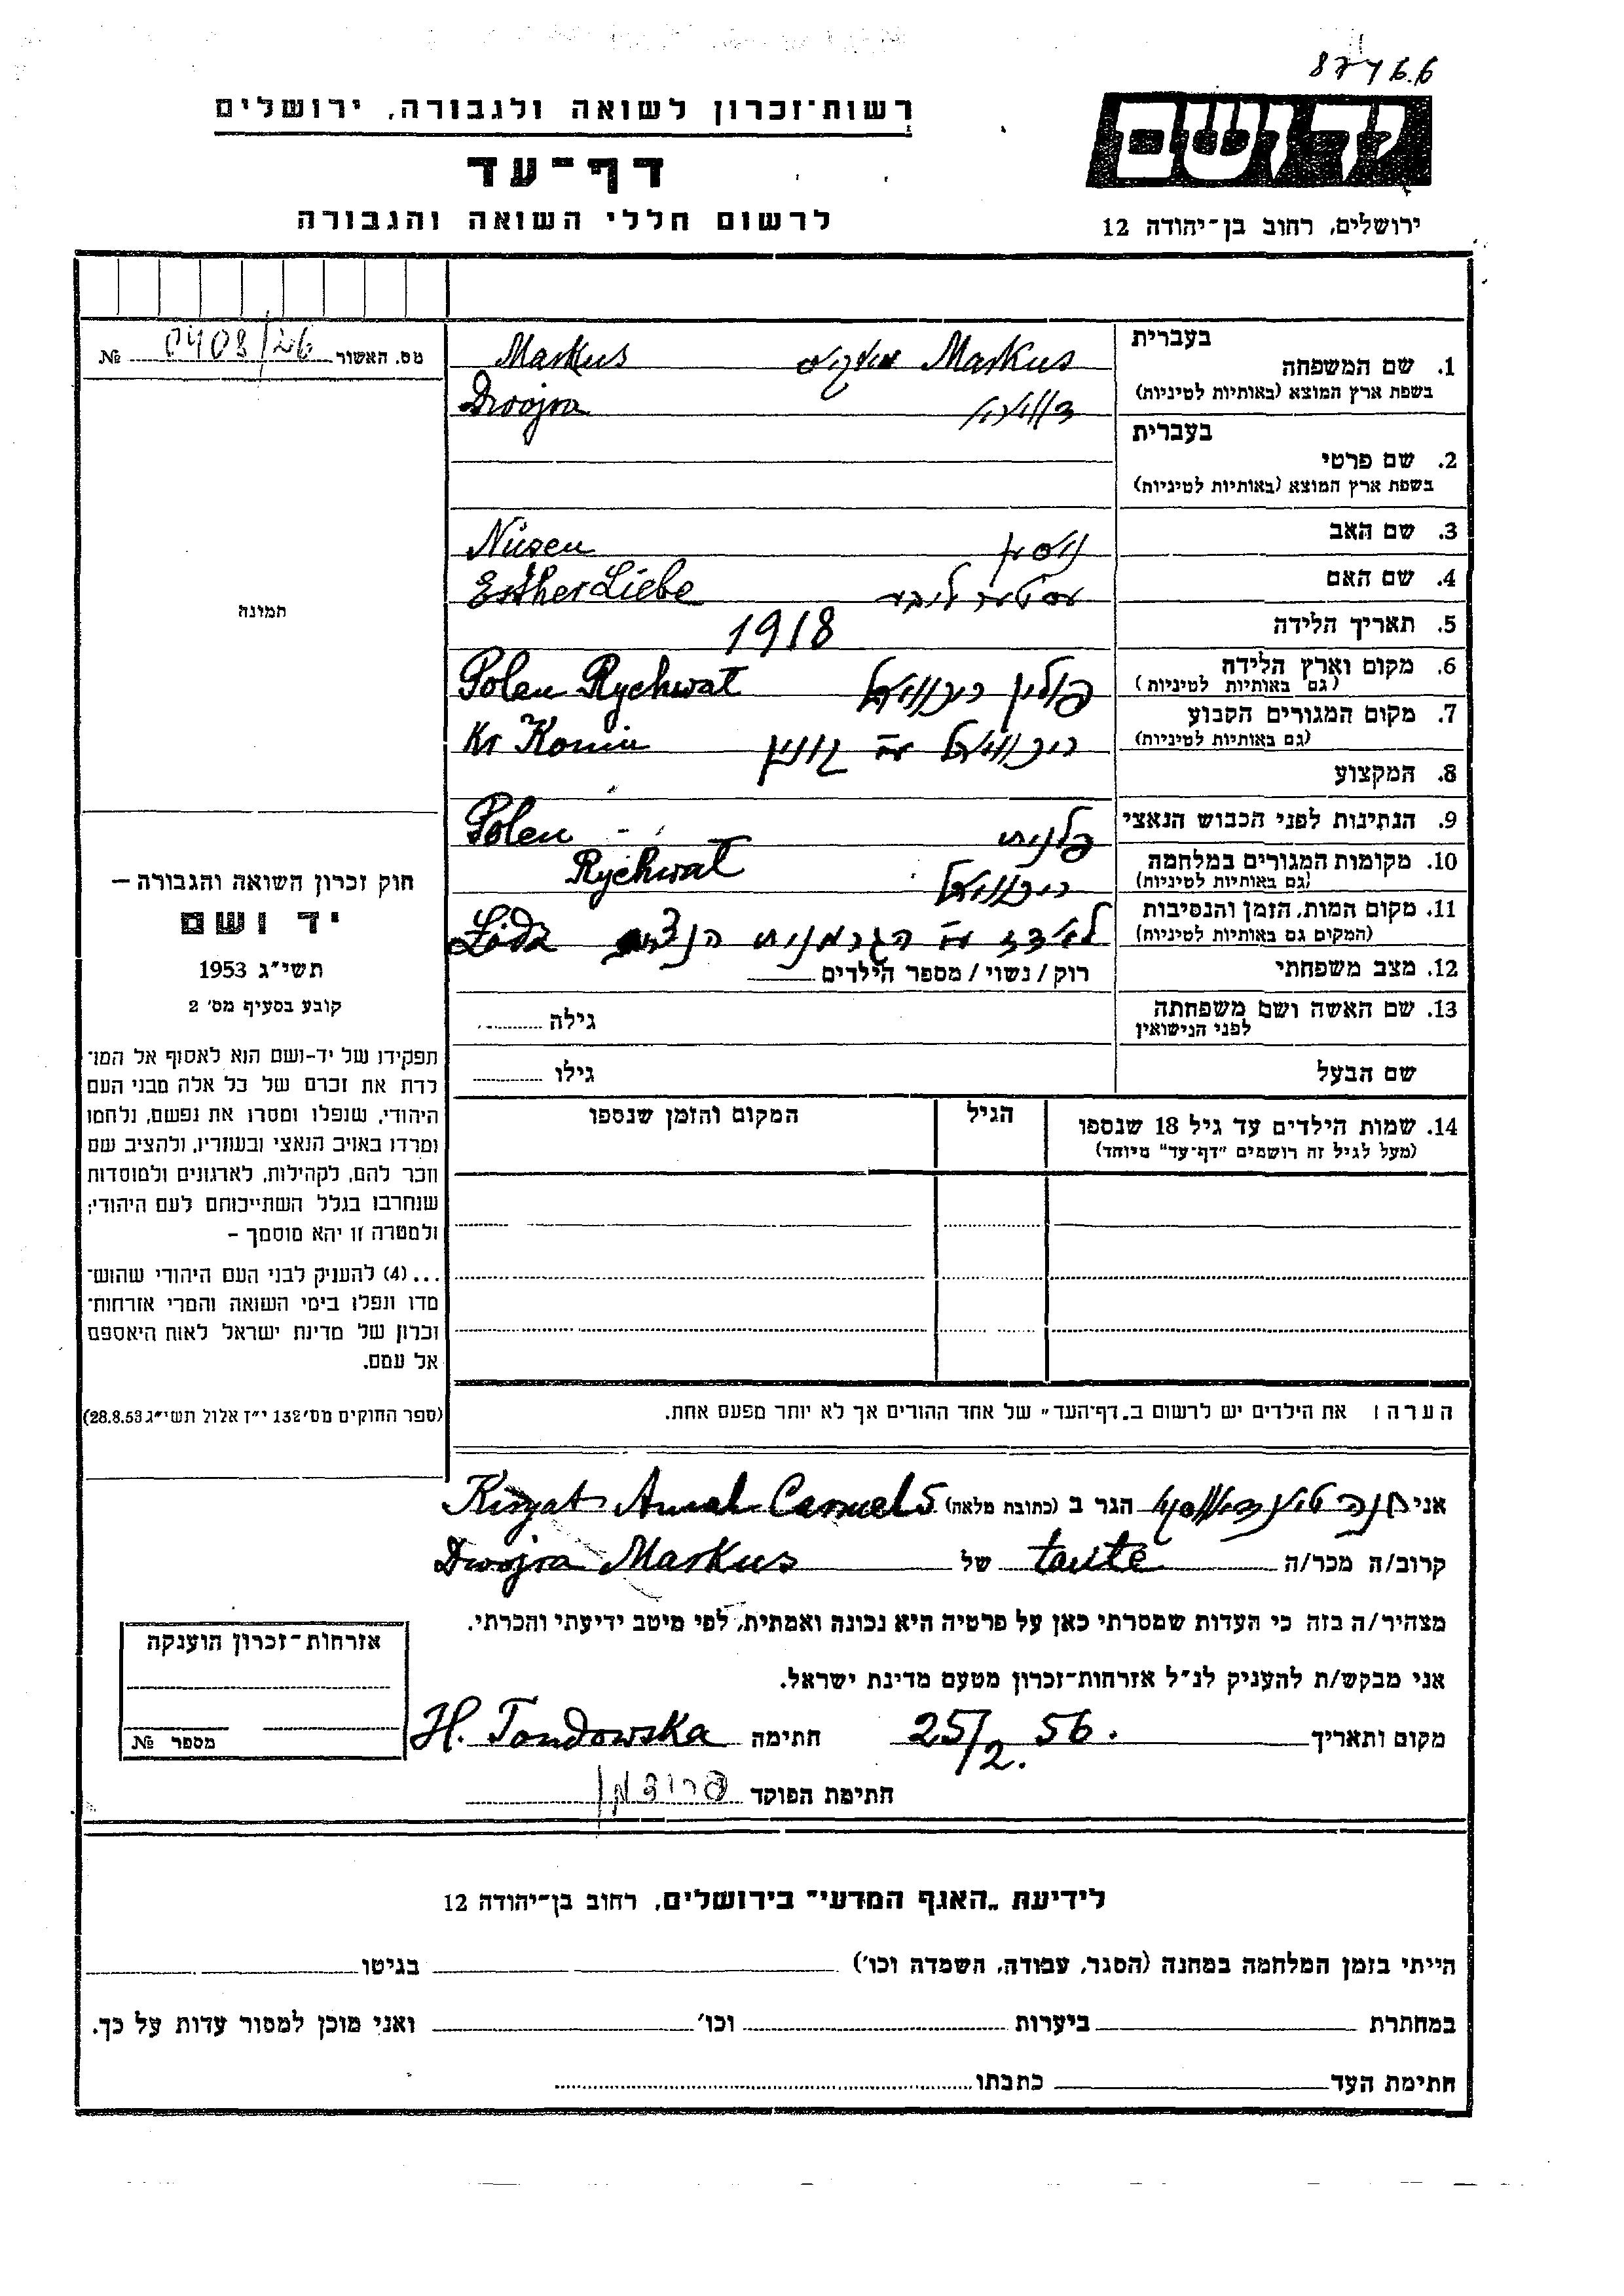 רשות־זכרון לשואה ולגבורה, ירושלים
דף־עד
לרשום חללי השואה והגבורה
ירושלים, רחוב בן־יהודה 12
מס. האשור 0408/26 №
תמונה
חוק זכרון השואה והגבורה —
יד ושם
תשי״ג 1953
קובע בסעיף מס׳ 2
תפקידו של יד-ושם הוא לאסוף אל המו־
לדת את זכרם של כל אלה מבני העם
היהודי, שנפלו ומסרו את נפשם, נלחמו
ומרדו באויב הנאצי ובעוזריו, ולהציב שם
וזכר להם, לקהילות, לארגונים ולמוסדות
שנחרבו בגלל השתייכותם לעם היהודי;
ולמטרה זו יהא מוסמך —
...(4) להעניק לבני העם היהודי שהוש־
מדו ונפלו בימי השואה והמרי אזרחות־
זכרון של מדינת ישראל לאות היאספם
אל עמם.
(ספר החוקים מס׳ 132 י״ז אלול תשי״ג 28.8.53)
בעברית
1. שם המשפחה Markus Markus
בשפת ארץ המוצא (באותיות לטיניות) Dwojra
בעברית
2. שם פרטי
בשפת ארץ המוצא (באותיות לטיניות)
3. שם האב ניסען Nüsen
4. שם האם עסטער ליבע Esther Liebe
5. תאריך הלידה 1918
6. מקום וארץ הלידה פולין ריכוואל Polen Rychwat
(גם באותיות לטיניות)
7. מקום המגורים הקבוע ריכוואל Kr Konin
(גם באותיות לטיניות)
8. המקצוע
9. הנתינות לפני הכבוש הנאצי פלנית Polen
10. מקומות המגורים במלחמה ריכוואל Rychwal
(גם באותיות לטיניות)
11. מקום המות, הזמן והנסיבות לאדז הגרמנית Lódz
(המקום גם באותיות לטיניות)
12. מצב משפחתי רוק / נשוי / מספר הילדים
13. שם האשה ושם משפחתה גילה
לפני הנישואין
שם הבעל גילו
14. שמות הילדים עד גיל 18 שנספו הגיל המקום והזמן שנספו
(מעל לגיל זה רושמים "דף־עד" מיוחד)
הערה: את הילדים יש לרשום ב„דף־העד״ של אחד ההורים אך לא יותר מפעם אחת.
אני חנה הגר ב (כתובת מלאה) Kiryat Amal
קרוב/ה מכר/ה tante של Dwojra Markus
מצהיר/ה בזה כי העדות שמסרתי כאן על פרטיה היא נכונה ואמתית, לפי מיטב ידיעתי והכרתי.
אני מבקש/ת להעניק לנ״ל אזרחות־זכרון מטעם מדינת ישראל.
מקום ותאריך 25/2. 56. חתימה H. Tondowska
חתימת הפוקד פרידמן
אזרחות־זכרון הוענקה
מספר №
לידיעת „האגף המדעי״ בירושלים, רחוב בן־יהודה 12
הייתי בזמן המלחמה במחנה (הסגר, עבודה, השמדה וכו׳) בגיטו
במחתרת ביערות וכו׳ ואני מוכן למסור עדות על כך.
חתימת העד כתבתו